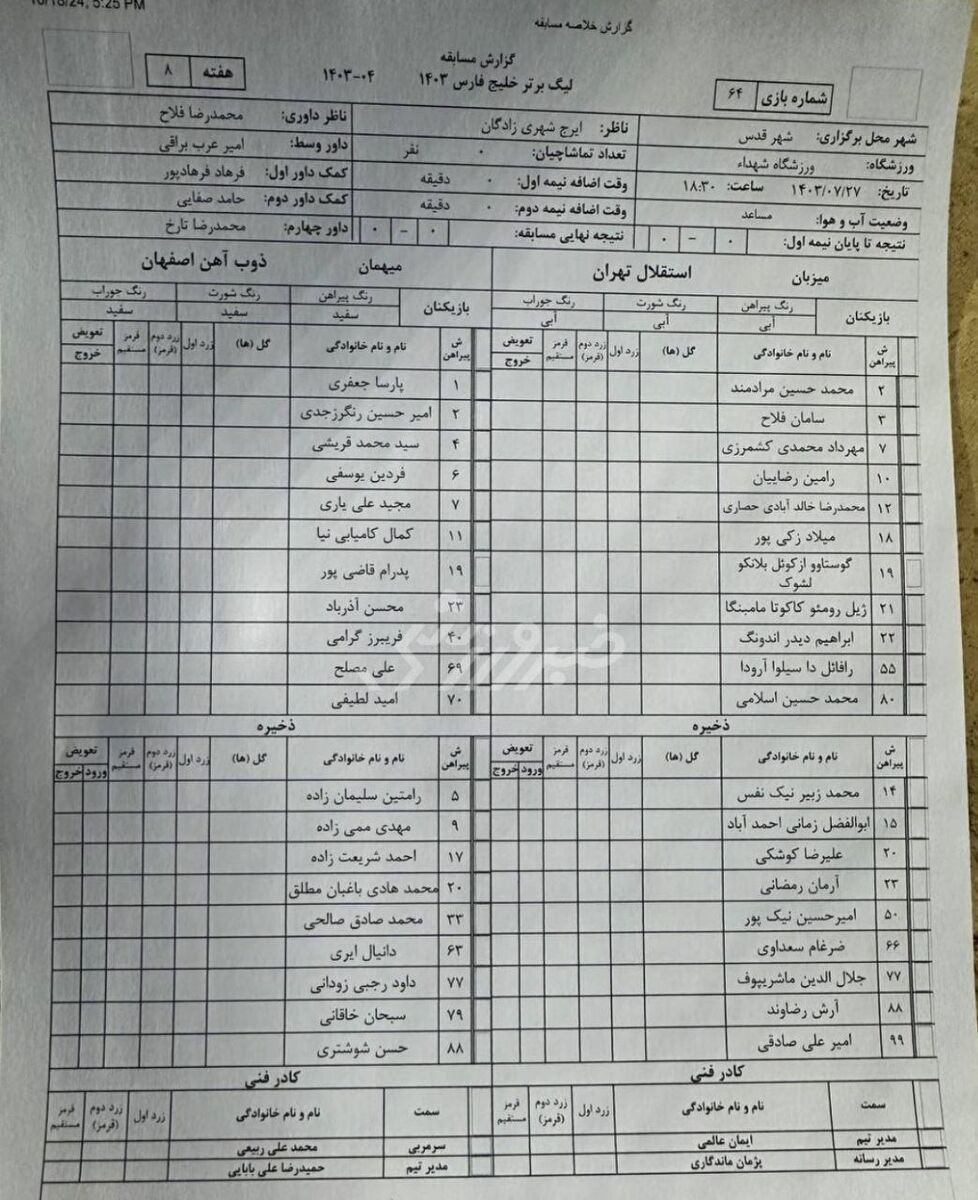 10/18/24, 5:25 PM
گزارش خلاصه مسابقه
گزارش مسابقه
لیگ برتر خلیج فارس ۱۴۰۳ ۱۴۰۳-۰۴
شماره بازی ۶۴
هفته ۸
شهر محل برگزاری: شهر قدس
ورزشگاه: ورزشگاه شهداء
تاریخ: ۱۴۰۳/۰۷/۲۷ ساعت: ۱۸:۳۰
وضعیت آب و هوا: مساعد
نتیجه تا پایان نیمه اول: ۰ – ۰
ناظر: ایرج شهری زادگان
تعداد تماشاچیان: ۰ نفر
وقت اضافه نیمه اول: ۰ دقیقه
وقت اضافه نیمه دوم: ۰ دقیقه
نتیجه نهایی مسابقه: ۰ – ۰
ناظر داوری: محمدرضا فلاح
داور وسط: امیر عرب براقی
کمک داور اول: فرهاد فرهادپور
کمک داور دوم: حامد صفایی
داور چهارم: محمدرضا تارخ
میزبان استقلال تهران
بازیکنان رنگ پیراهن رنگ شورت رنگ جوراب
آبی آبی آبی
ش پیراهن نام و نام خانوادگی گل (ها) زرد اول زرد دوم (قرمز) قرمز مستقیم تعویض خروج
۲ محمد حسین مرادمند
۳ سامان فلاح
۷ مهرداد محمدی کشمرزی
۱۰ رامین رضاییان
۱۲ محمدرضا خالد آبادی حصاری
۱۸ میلاد زکی پور
۱۹ گوستاوو ازکوئل بلانکو
لشوک
۲۱ ژیل رومئو کاکوتا مامبنگا
۲۲ ابراهیم دیدر اندونگ
۵۵ رافائل دا سیلوا آرودا
۸۰ محمد حسین اسلامی
ذخیره
ش پیراهن نام و نام خانوادگی گل (ها) زرد اول زرد دوم (قرمز) قرمز مستقیم تعویض ورود خروج
۱۴ محمد زبیر نیک نفس
۱۵ ابوالفضل زمانی احمد آباد
۲۰ علیرضا کوشکی
۲۳ آرمان رمضانی
۵۰ امیرحسین نیک پور
۶۶ ضرغام سعداوی
۷۷ جلال الدین ماشریپوف
۸۸ آرش رضاوند
۹۹ امیر علی صادقی
کادر فنی
سمت نام و نام خانوادگی زرد اول زرد دوم (قرمز) قرمز مستقیم
مدیر تیم ایمان عالمی
مدیر رسانه پژمان ماندگاری
میهمان ذوب آهن اصفهان
بازیکنان رنگ پیراهن رنگ شورت رنگ جوراب
سفید سفید سفید
ش پیراهن نام و نام خانوادگی گل (ها) زرد اول زرد دوم (قرمز) قرمز مستقیم تعویض خروج
۱ پارسا جعفری
۲ امیر حسین رنگرزجدی
۴ سید محمد قریشی
۶ فردین یوسفی
۷ مجید علی یاری
۱۱ کمال کامیابی نیا
۱۹ پدرام قاضی پور
۲۳ محسن آذرباد
۴۰ فریبرز گرامی
۶۹ علی مصلح
۷۰ امید لطیفی
ذخیره
ش پیراهن نام و نام خانوادگی گل (ها) زرد اول زرد دوم (قرمز) قرمز مستقیم تعویض ورود خروج
۵ رامتین سلیمان زاده
۹ مهدی ممی زاده
۱۷ احمد شریعت زاده
۲۰ محمد هادی باغبان مطلق
۳۳ محمد صادق صالحی
۶۳ دانیال ایری
۷۷ داود رجبی زودانی
۷۹ سبحان خاقانی
۸۸ حسن شوشتری
کادر فنی
سمت نام و نام خانوادگی زرد اول زرد دوم (قرمز) قرمز مستقیم
سرمربی محمد علی ربیعی
مدیر تیم حمیدرضا علی بابایی
خبرورزشی